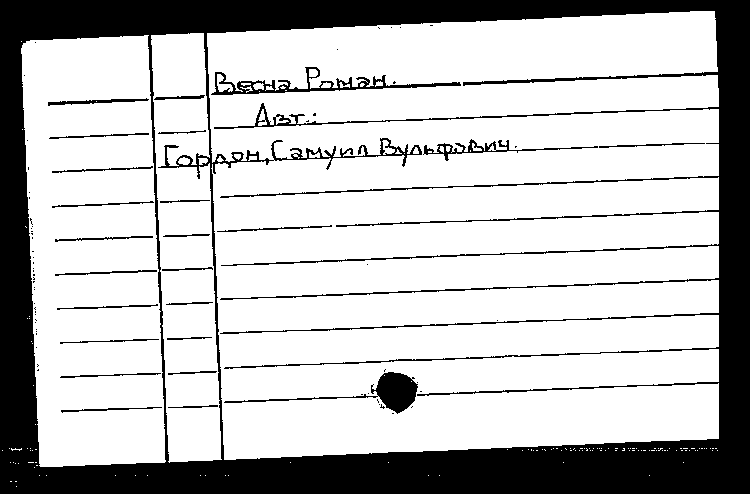 Весна. Роман.
Авт.:
Гордон, Самуил Вульфович.